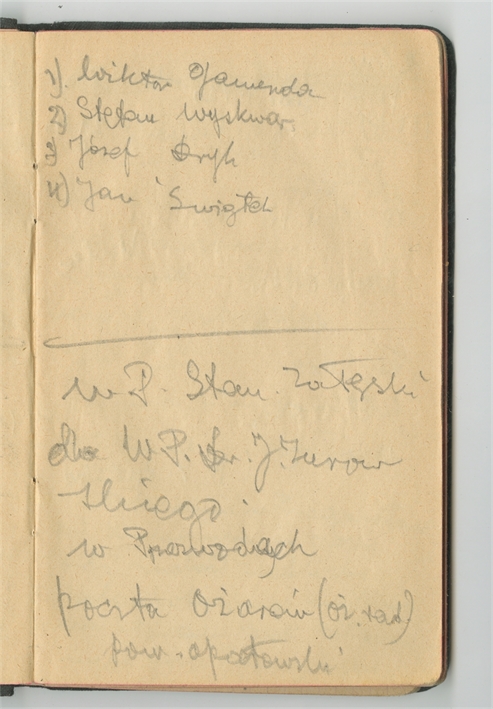 1). Wiktor Gamenda
2) Stefan Wyskwar
3) Józef
4) Jan Świątek
W.P. Stan. Załęski
dla W.P. Dr. J. Jurow
skiego.
w Przewodach
poczta Ożarów (
pow. opatowski